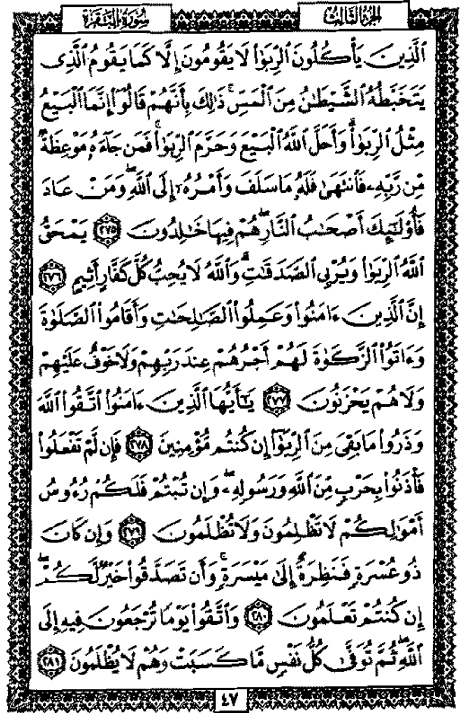 الجزء الثالث سورة البقرة
ٱلَّذِينَ يَأْكُلُونَ ٱلرِّبَوٰا۟ لَا يَقُومُونَ إِلَّا كَمَا يَقُومُ ٱلَّذِى
يَتَخَبَّطُهُ ٱلشَّيْطَٰنُ مِنَ ٱلْمَسِّ ۚ ذَٰلِكَ بِأَنَّهُمْ قَالُوٓا۟ إِنَّمَا ٱلْبَيْعُ
مِثْلُ ٱلرِّبَوٰا۟ ۗ وَأَحَلَّ ٱللَّهُ ٱلْبَيْعَ وَحَرَّمَ ٱلرِّبَوٰا۟ ۚ فَمَن جَآءَهُۥ مَوْعِظَةٌ
مِّن رَّبِّهِۦ فَٱنتَهَىٰ فَلَهُۥ مَا سَلَفَ وَأَمْرُهُۥٓ إِلَى ٱللَّهِ ۖ وَمَنْ عَادَ
فَأُو۟لَٰٓئِكَ أَصْحَٰبُ ٱلنَّارِ ۖ هُمْ فِيهَا خَٰلِدُونَ ٢٧٥ يَمْحَقُ
ٱللَّهُ ٱلرِّبَوٰا۟ وَيُرْبِى ٱلصَّدَقَٰتِ ۗ وَٱللَّهُ لَا يُحِبُّ كُلَّ كَفَّارٍ أَثِيمٍ ٢٧٦
إِنَّ ٱلَّذِينَ ءَامَنُوا۟ وَعَمِلُوا۟ ٱلصَّٰلِحَٰتِ وَأَقَامُوا۟ ٱلصَّلَوٰةَ
وَءَاتَوُا۟ ٱلزَّكَوٰةَ لَهُمْ أَجْرُهُمْ عِندَ رَبِّهِمْ وَلَا خَوْفٌ عَلَيْهِمْ
وَلَا هُمْ يَحْزَنُونَ ٢٧٧ يَٰٓأَيُّهَا ٱلَّذِينَ ءَامَنُوا۟ ٱتَّقُوا۟ ٱللَّهَ
وَذَرُوا۟ مَا بَقِىَ مِنَ ٱلرِّبَوٰٓا۟ إِن كُنتُم مُّؤْمِنِينَ ٢٧٨ فَإِن لَّمْ تَفْعَلُوا۟
فَأْذَنُوا۟ بِحَرْبٍ مِّنَ ٱللَّهِ وَرَسُولِهِۦ ۖ وَإِن تُبْتُمْ فَلَكُمْ رُءُوسُ
أَمْوَٰلِكُمْ لَا تَظْلِمُونَ وَلَا تُظْلَمُونَ ٢٧٩ وَإِن كَانَ
ذُو عُسْرَةٍ فَنَظِرَةٌ إِلَىٰ مَيْسَرَةٍ ۚ وَأَن تَصَدَّقُوا۟ خَيْرٌ لَّكُمْ ۖ
إِن كُنتُمْ تَعْلَمُونَ ٢٨٠ وَٱتَّقُوا۟ يَوْمًا تُرْجَعُونَ فِيهِ إِلَى
ٱللَّهِ ۖ ثُمَّ تُوَفَّىٰ كُلُّ نَفْسٍ مَّا كَسَبَتْ وَهُمْ لَا يُظْلَمُونَ ٢٨١
٤٧